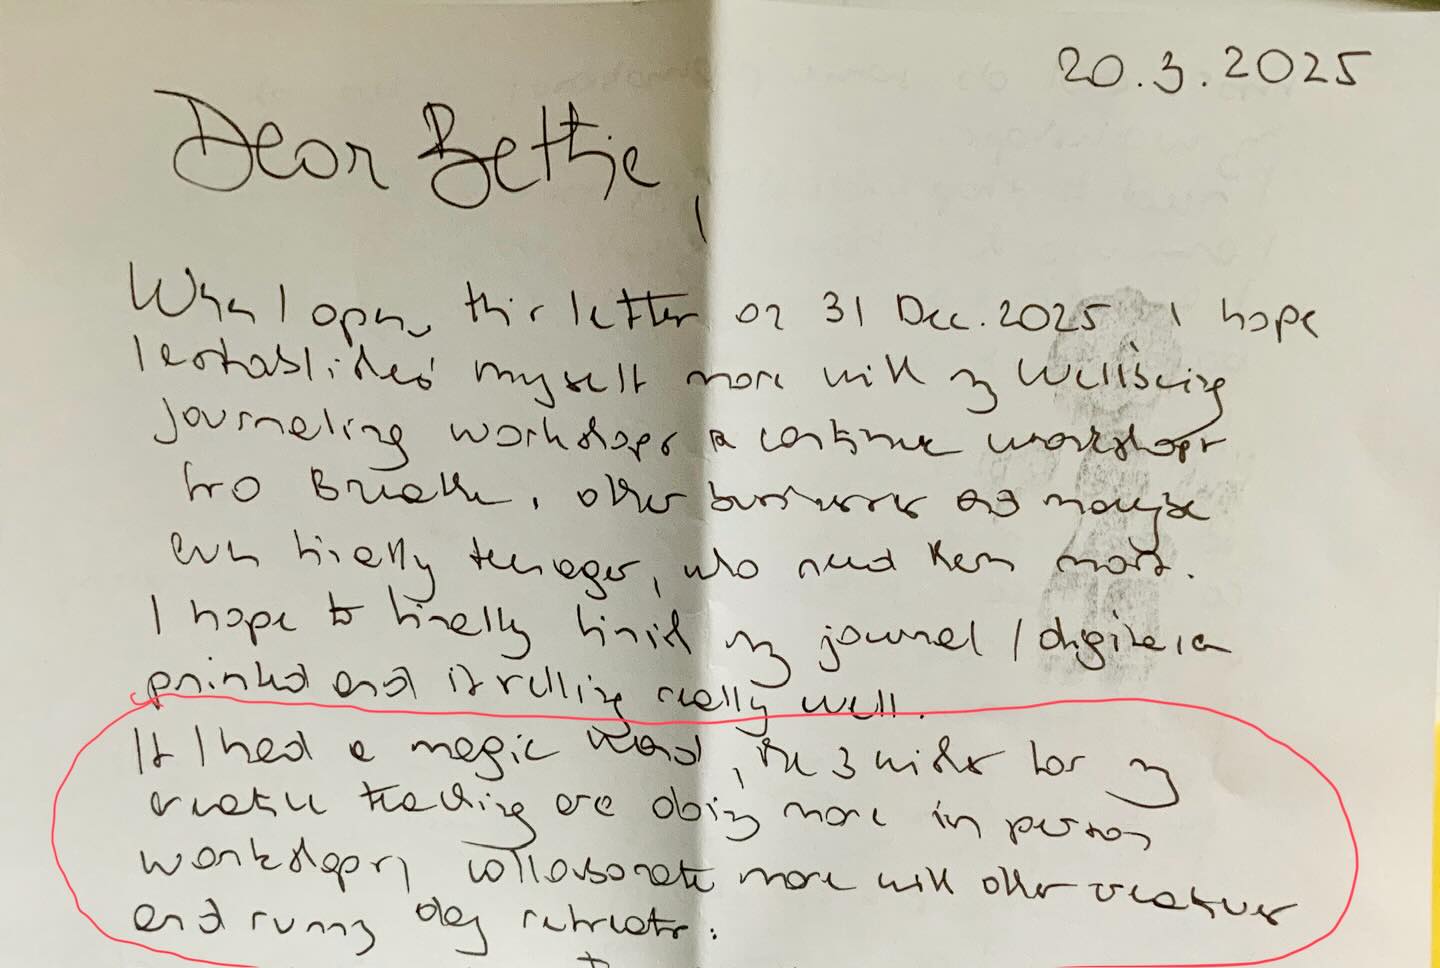 20.3.2025
Dear Bettie,
When I open this letter on 31 Dec. 2025 I hope
I established myself more with my Wellbeing
journaling workshops & continue workshops
for Breathe, other businesses and maybe
even finally teenager, who need them most.
I hope to finally finish my journal / digital or
printed and it selling really well.
If I had a magic wand, the 3 wishes for my
creative teaching are doing more in person
workshops, collaborate more with other creatives
and runng day retreats.